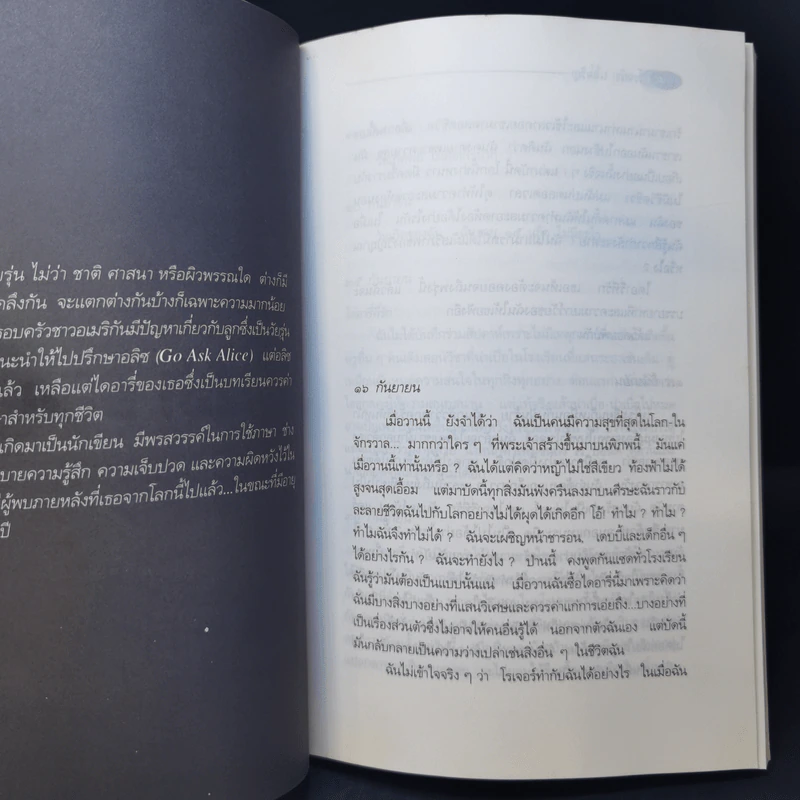 ยรุ่น ไม่ว่า ชาติ ศาสนา หรือผิวพรรณใด ต่างก็มี
ลึงกัน จะแตกต่างกันบ้างก็เฉพาะความมากน้อย
รอบครัวชาวอเมริกันมีปัญหาเกี่ยวกับลูกซึ่งเป็นวัยรุ่น
นะนำให้ไปปรึกษาอลิซ (Go Ask Alice) แต่อลิซ
แล้ว เหลือแต่ไดอารี่ของเธอซึ่งเป็นบทเรียนควรค่า
าสำหรับทุกชีวิต
เกิดมาเป็นนักเขียน มีพรสวรรค์ในการใช้ภาษา ช่าง
บายความรู้สึก ความเจ็บปวด และความผิดหวังไว้ใน
ผู้พบภายหลังที่เธอจากโลกนี้ไปแล้ว...ในขณะที่มีอายุ
ปี
๑๖ กันยายน
เมื่อวานนี้ ยังจำได้ว่า ฉันเป็นคนมีความสุขที่สุดในโลก-ใน
จักรวาล... มากกว่าใคร ๆ ที่พระเจ้าสร้างขึ้นมาบนพิภพนี้ มันแค่
เมื่อวานนี้เท่านั้นหรือ ? ฉันได้แต่คิดว่าหญ้าไม่ใช่สีเขียว ท้องฟ้าไม่ได้
สูงจนสุดเอื้อม แต่มาบัดนี้ทุกสิ่งมันพังครืนลงมาบนศีรษะฉันราวกับ
ละลายชีวิตฉันไปกับโลกอย่างไม่ได้ผุดได้เกิดอีก โอ้! ทำไม ? ทำไม ?
ทำไมฉันจึงทำไม่ได้ ? ฉันจะเผชิญหน้าชารอน, เดบบี้และเด็กอื่น ๆ
ได้อย่างไรกัน ? ฉันจะทำยังไง ? ป่านนี้ คงพูดกันแซดทั่วโรงเรียน
ฉันรู้ว่ามันต้องเป็นแบบนั้นแน่ เมื่อวานฉันซื้อไดอารี่นี้มาเพราะคิดว่า
ฉันมีบางสิ่งบางอย่างที่แสนวิเศษและควรค่าแก่การเอ่ยถึง...บางอย่างที่
เป็นเรื่องส่วนตัวซึ่งไม่อาจให้คนอื่นรู้ได้ นอกจากตัวฉันเอง แต่บัดนี้
มันกลับกลายเป็นความว่างเปล่าเช่นสิ่งอื่น ๆ ในชีวิตฉัน
ฉันไม่เข้าใจจริง ๆ ว่า โรเจอร์ทำกับฉันได้อย่างไร ในเมื่อฉัน